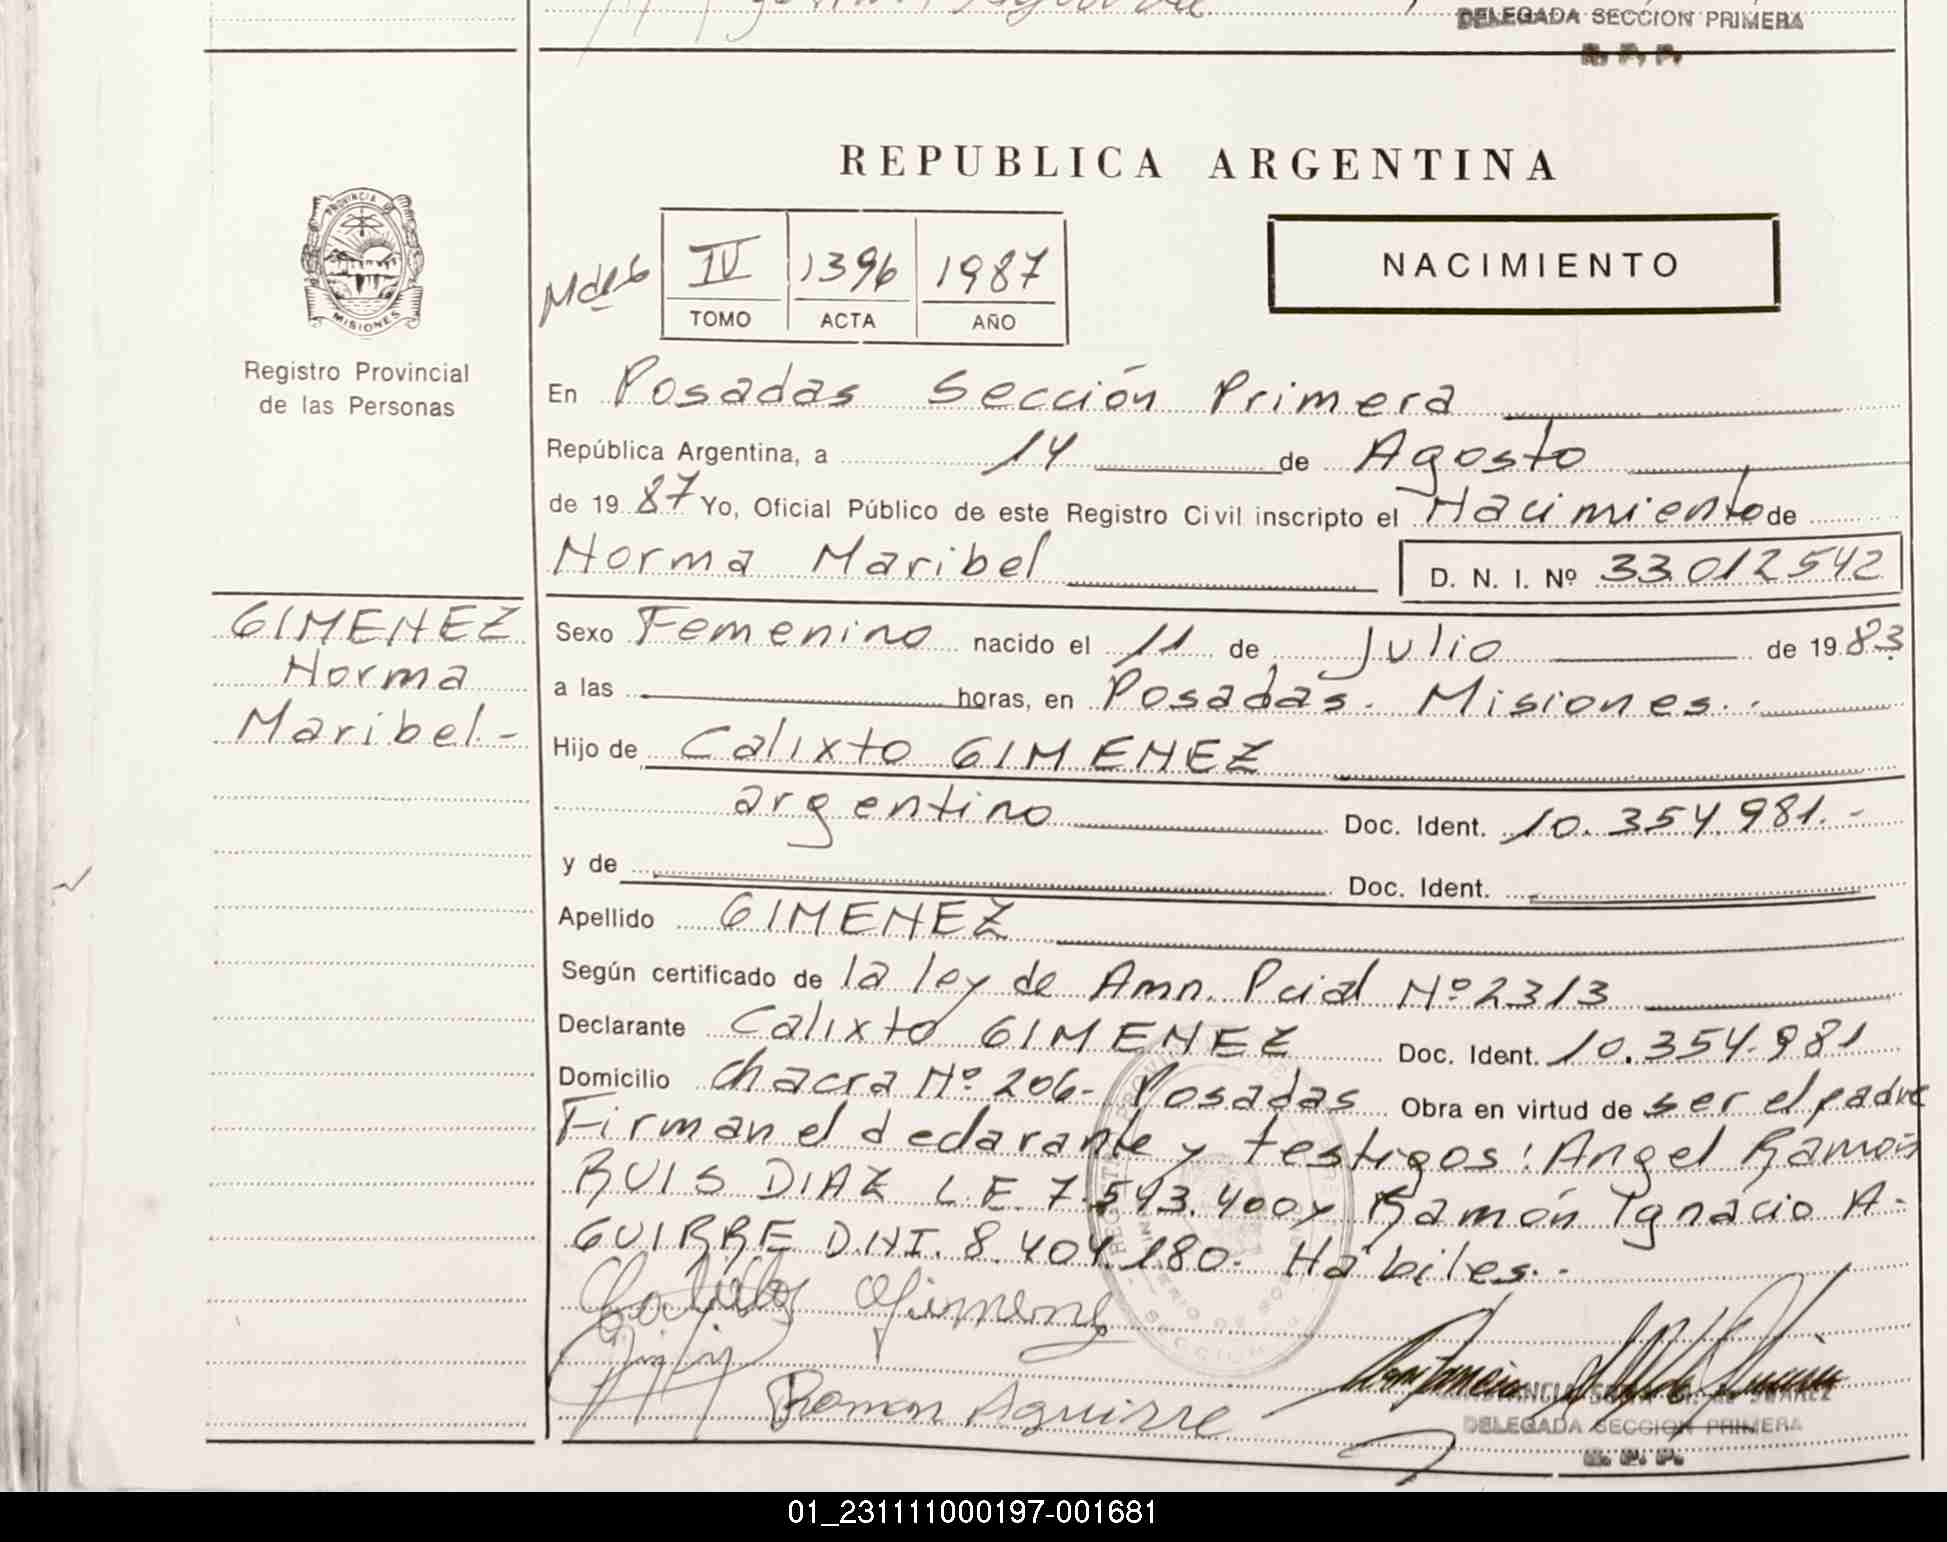 DELEGADA SECCION PRIMERA
R. P. P.
REPUBLICA ARGENTINA
PROVINCIA DE
MISIONES
Registro Provincial
de las Personas
IV 1396 1987
TOMO ACTA AÑO
NACIMIENTO
En Posadas Sección Primera
República Argentina, a 14 de Agosto
de 1987 Yo, Oficial Público de este Registro Civil inscripto el Nacimiento de
Norma Maribel D. N. I. Nº 33.012542
GIMENEZ
Norma
Maribel.-
Sexo Femenino nacido el 11 de Julio de 1983
a las horas, en Posadas. Misiones..
Hijo de Calixto GIMENEZ
argentino Doc. Ident. 10.354.981.-
y de Doc. Ident.
Apellido GIMENEZ
Según certificado de la ley de Amn. Pcial Nº 2313
Declarante Calixto GIMENEZ Doc. Ident. 10.354.981
Domicilio Chacra Nº 206- Posadas Obra en virtud de ser el padre
Firman el declarante y testigos: Angel Ramón
RUIS DIAZ L.E. 7.543.400 y Ramón Ignacio A-
GUIRRE D.N.I. 8.404.180. Hábiles.-
Calixto Gimenez
Ramon Aguirre
DELEGADA SECCION PRIMERA
R. P. P.
01_231111000197-001681